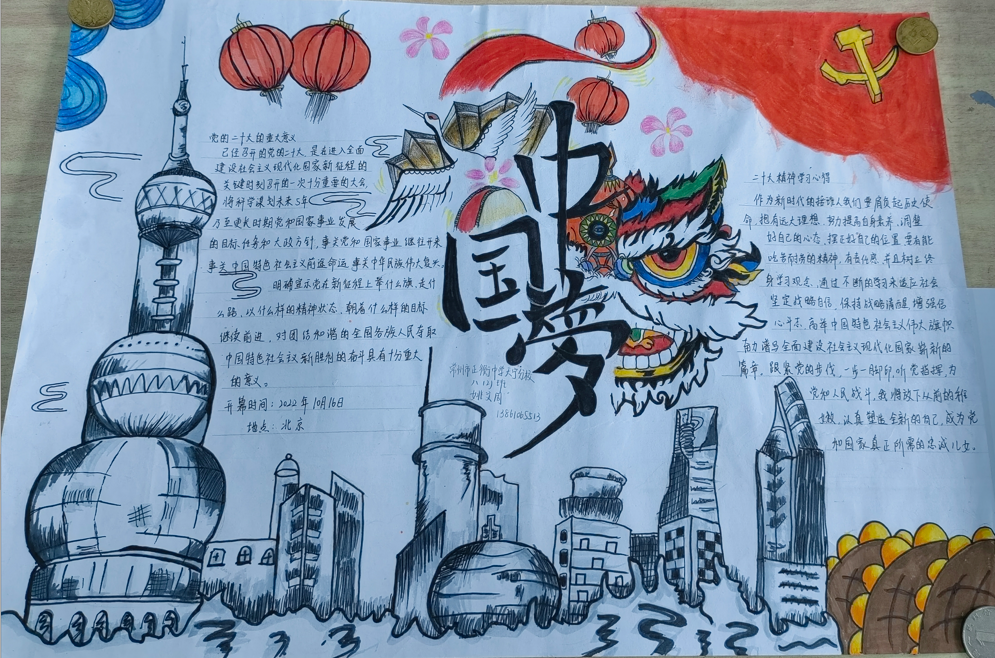 党的二十大的重大意义
已经召开的党的二十大,是在进入全面
建设社会主义现代化国家新征程的
关键时刻召开的一次十分重要的大会,
将科学谋划未来5年
乃至更长时期党和国家事业发展
的目标任务和大政方针,事关党和国家事业继往开来
事关中国特色社会主义前途命运,事关中华民族伟大复兴。
明确宣示党在新征程上举什么旗、走什
么路、以什么样的精神状态、朝着什么样的目标
继续前进,对团结和谐的全国各族人民夺取
中国特色社会主义新胜利的奋斗具有十分重大
的意义。
开幕时间:2022年10月16日
地点:北京
中国梦
二十大精神学习心得
作为新时代的接班人我们要肩负起历史使
命,抱有远大理想,努力提高自身素养,调整
好自己的心态,摆正好自己的位置,要有能
吃苦耐劳的精神,有责任感,并且树立终
身学习观念,通过不断的学习来适应社会
坚定战略自信,保持战略清醒,增强信
心斗志,高举中国特色社会主义伟大旗帜
奋力谱写全面建设社会主义现代化国家崭新的
篇章,跟紧党的步伐,一步一脚印,听党指挥,为
党和人民战斗。我将改下从前的稚
嫩,认真塑造全新的自己,成为党
和国家真正所需的忠诚儿女。